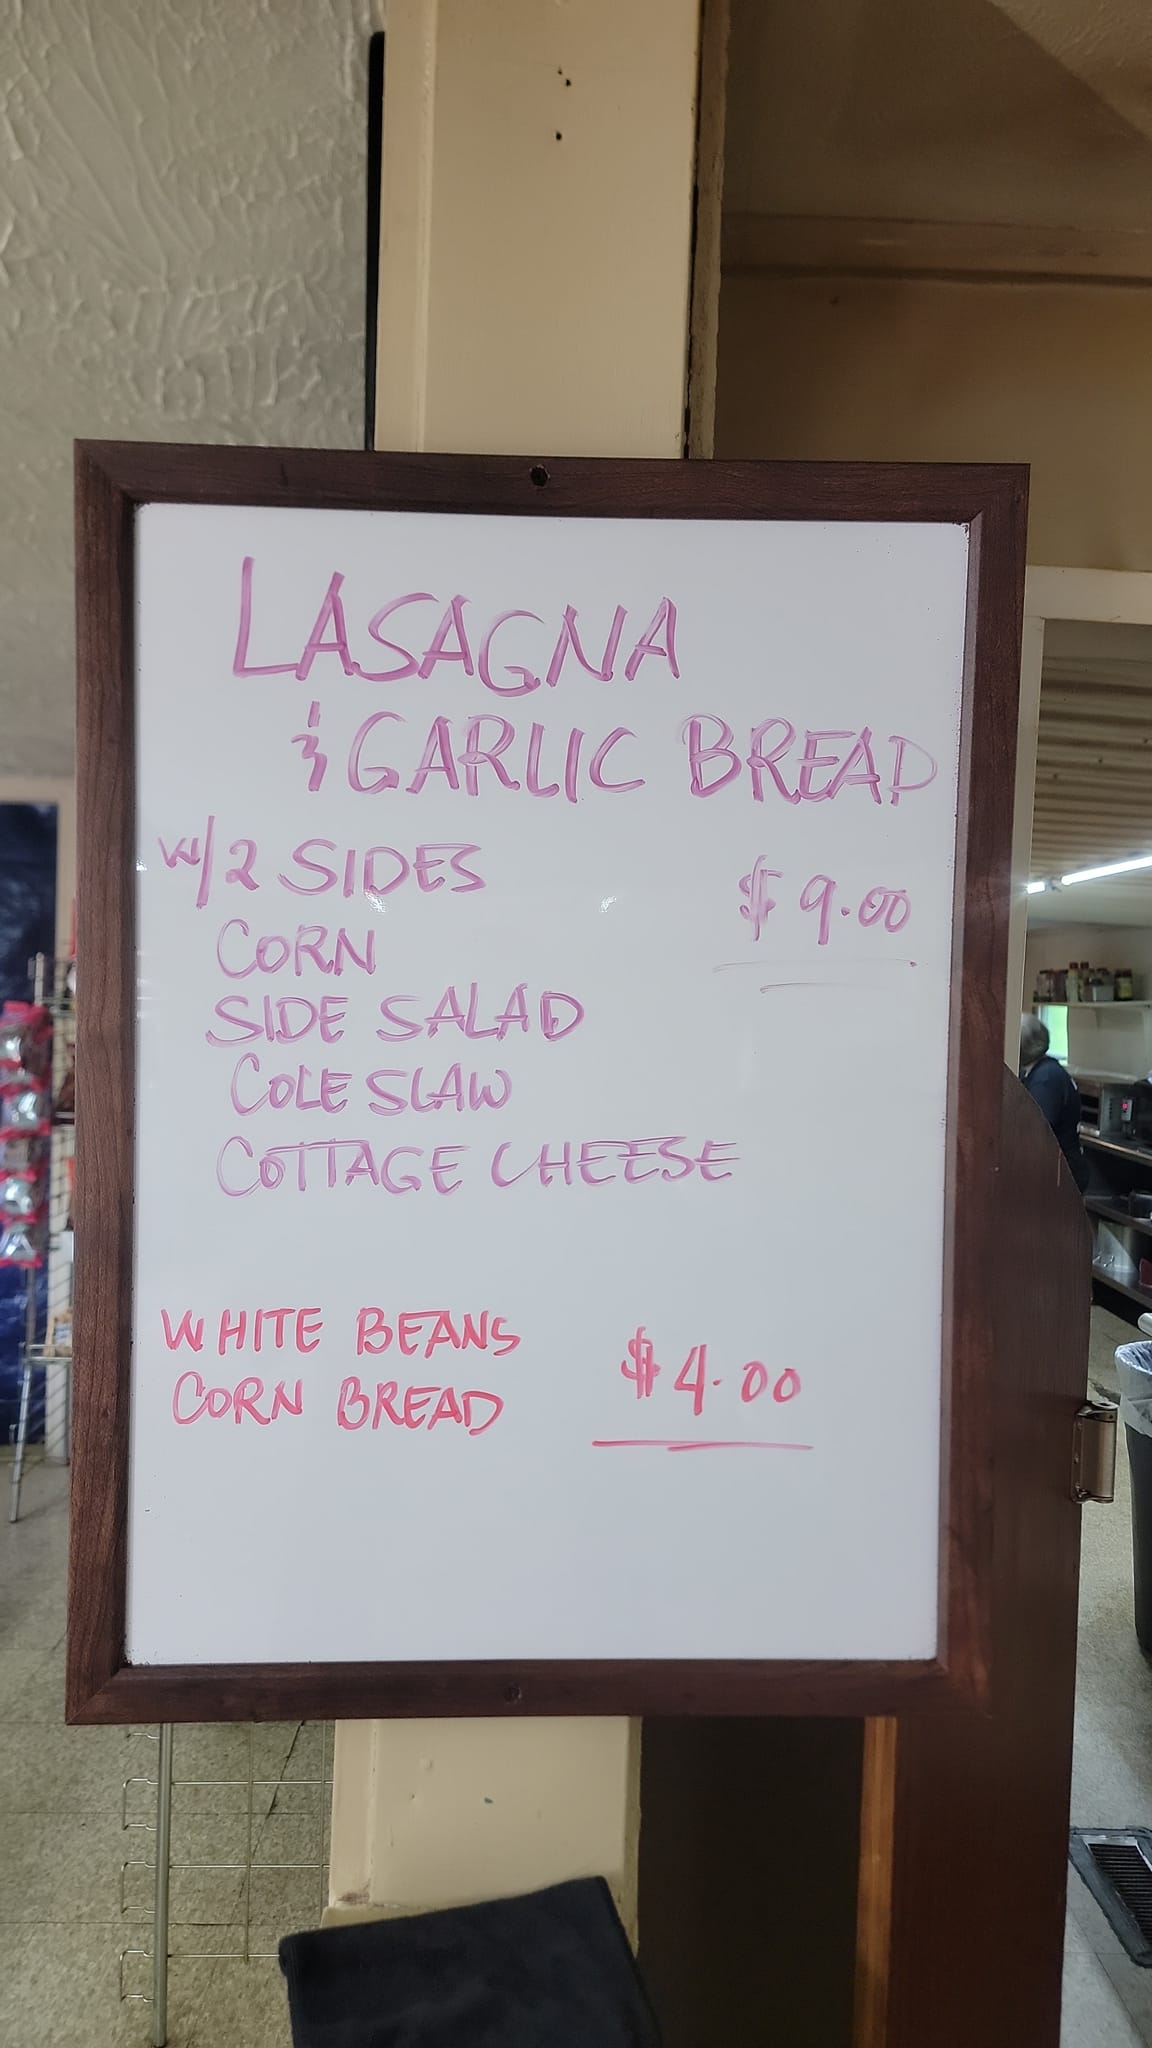 LASAGNA
& GARLIC BREAD
W/2 SIDES
$9.00
CORN
SIDE SALAD
COLE SLAW
COTTAGE CHEESE
WHITE BEANS
CORN BREAD
$4.00